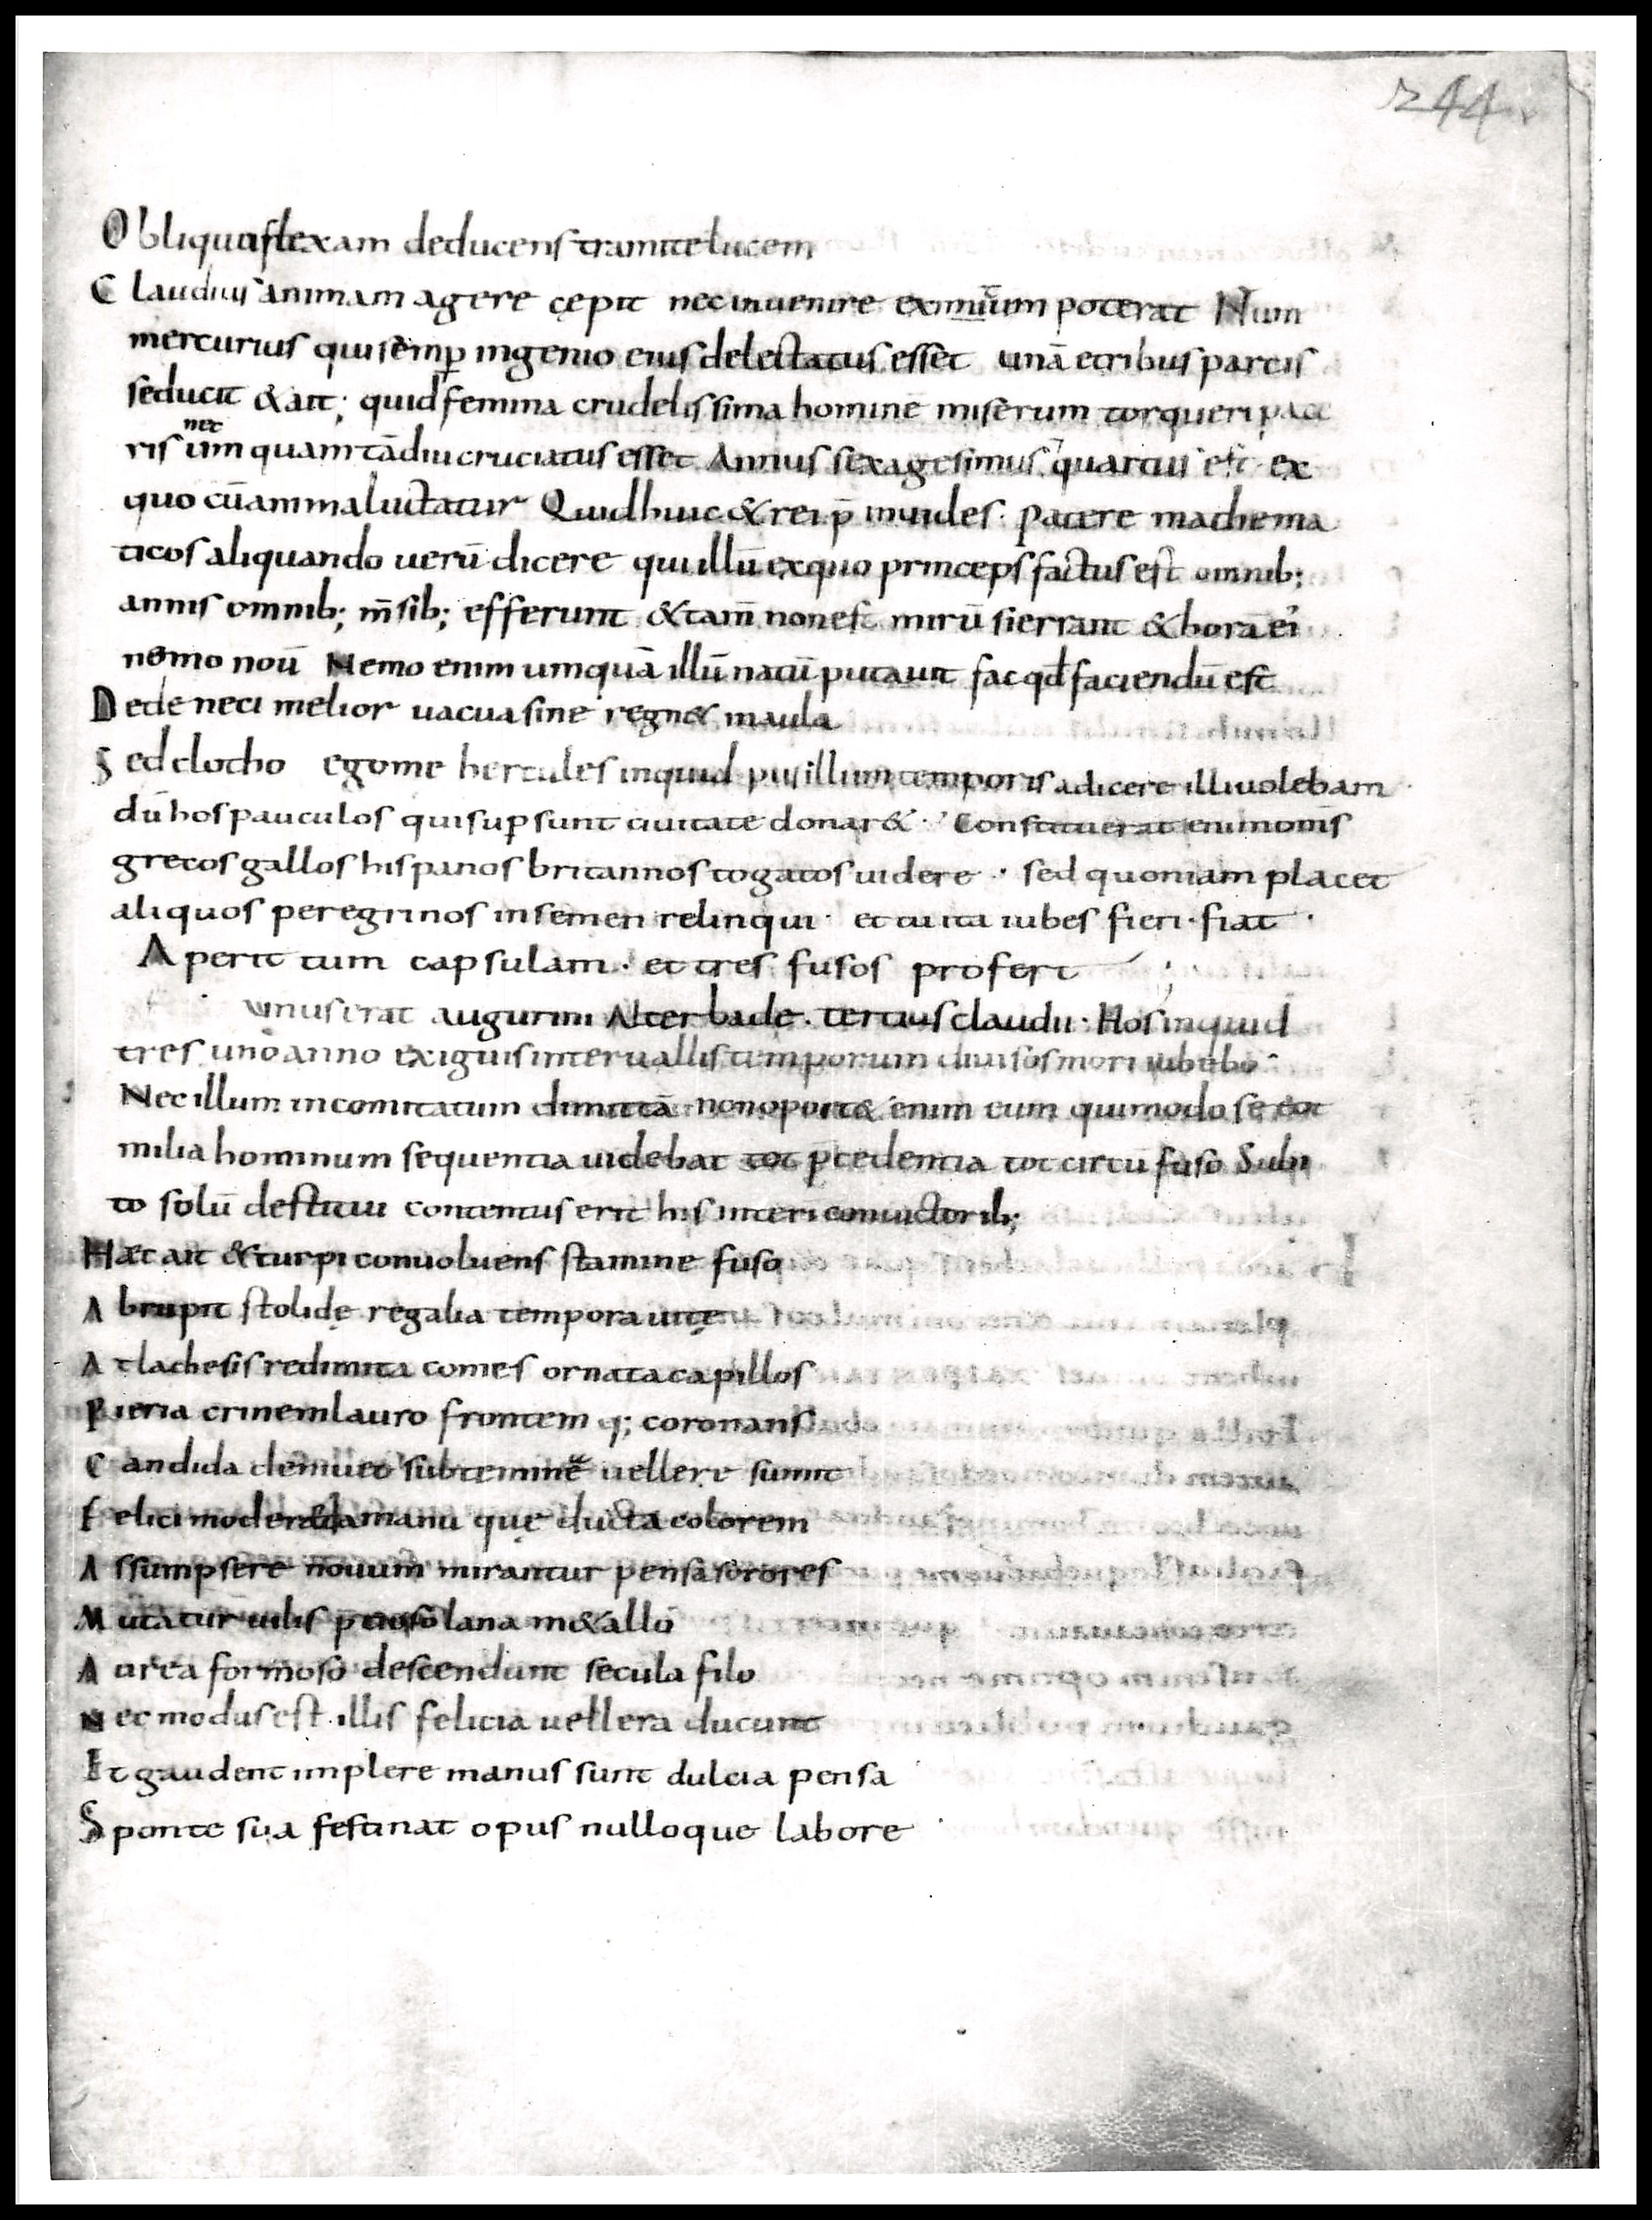 244
Obliquo flexam deducens tramite lucem
Claudius animam agere cępit nec inuenire eximium poterat Num
mercurius qui semp̄ ingenio eius delectatus esset unā etribus parcis
seducit & ait; quid femina crudelissima hominē miserum torqueri pate
nec
ris um quam tādiu cruciatus esset Annus sexagesimus quartus est ex
quo cū anima luctatur Quid huic & rei p̄ inuides. patere mathema
ticos aliquando uerū dicere qui illū exquo princeps factus est omnib;
annis omnib; m̄sib; efferunt & tam̄ non est mirū si errant & horā ei'
nemo nou̅ Nemo enim umquā illū natū putauit fac qd̄ faciendū est
Dede neci melior uacua sine regn& in aula
Sed clotho ego me hercules inquid pusillum temporis adicere illi uolebam
dū hos pauculos qui sup̱ sunt ciuitate donar& Constituerat enim om̄s
grecos gallos hispanos britannos togatos uidere · sed quoniam placet
aliquos peregrinos in semen relinqui · et tu ita iubes fieri · fiat ·
Aperit tum capsulam · et tres fusos profert
unus erat augurini Alter bade · tertius claudii · Hos inquid
tres uno anno exiguis interuallis temporum diuisos mori iubebo
Nec illum incomitatum dimittā non oport& enim eum qui modo se tot
milia hominum sequentia uidebat tot p̄cedentia tot circū fuso Subi
to solū destitui contentus erit his interi conuictorib;
Hæc ait & turpi conuoluens stamine fuso
Abrupit stolidę regalia tempora uitę
At lachesis redimita comes ornata capillos
Pieria crinem lauro frontem q; coronans
Candida de niueo subtemine uellere sumit
Felici moder&da manu quę ducta colorem
Assumpsere nouum mirantur pensa sorores
Mutatur uilis p̄tioso lana m&allo
Aurea formoso descendunt secula filo
Nec modus est illis felicia uellera ducunt
Et gaudent implere manus sunt dulcia pensa
Sponte sua festinat opus nulloque labore